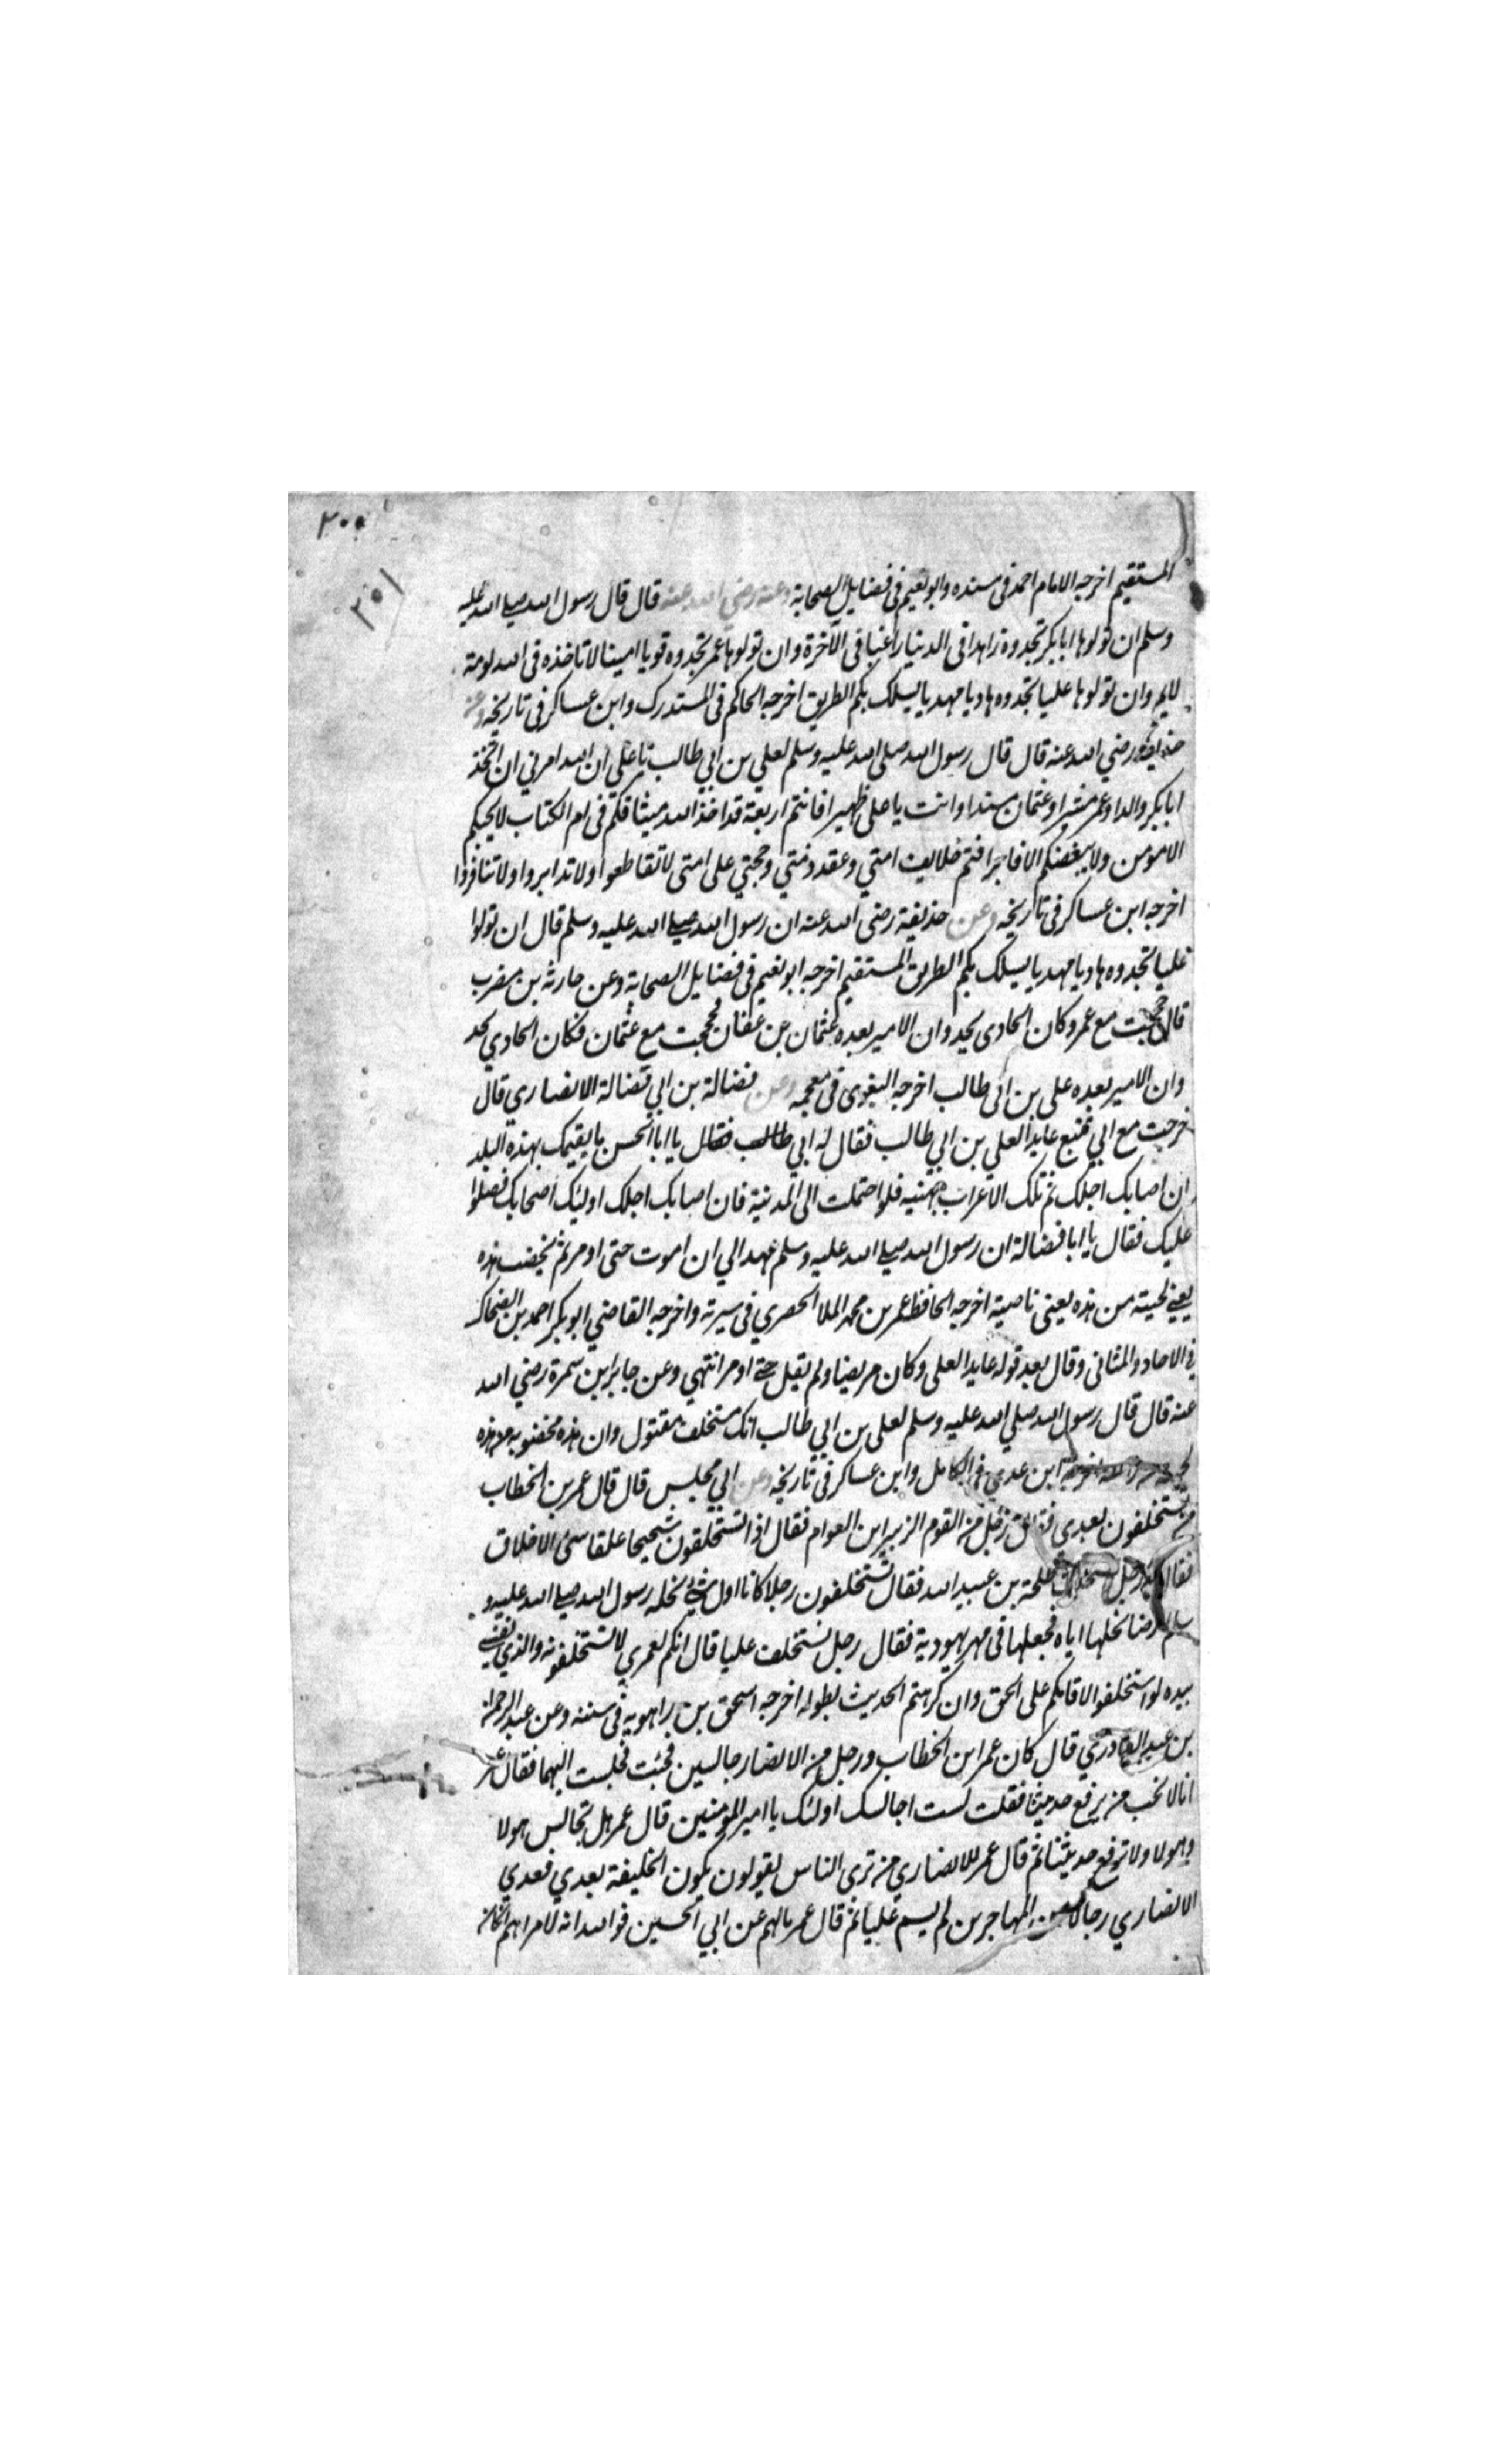 ٣٠٥
٣٥١
المستقيم اخرجه الامام احمد فى مسنده وابو نعيم فى فضايل الصحابة وعنه رضي الله عنه قال قال رسول الله صلى الله عليه
وسلم ان تولوها ابا بكر تجدوه زاهدا فى الدنيا راغبا فى الآخرة وان تولوها عمر تجدوه قويا امينا لا تاخذه فى الله لومة
لايم وان تولوها عليا تجدوه هاديا مهديا يسلك بكم الطريق اخرجه الحاكم فى المستدرك وابن عساكر فى تاريخه وعن
حذيفة رضي الله عنه قال قال رسول الله صلى الله عليه وسلم لعلي بن ابي طالب يا على ان الله امرني ان اتخذ
ابا بكر والدا وعمر مشيرا وعثمان سندا وانت يا على ظهيرا فانتم اربعة قد اخذ الله ميثاقكم فى ام الكتاب لا يحبكم
الا مومن ولا يبغضكم الا فاجر انتم خلايف امتي وعقد ذمتي وحجتي على امتى لا تقاطعوا ولا تدابروا ولا تنافروا
اخرجه ابن عساكر فى تاريخه وعن حذيفة رضى الله عنه ان رسول الله صلى الله عليه وسلم قال ان تولوا
عليا تجدوه هاديا مهديا يسلك بكم الطريق المستقيم اخرجه ابو نعيم فى فضايل الصحابة وعن حارثه بن مضرب
قال حججت مع عمر وكان الحادى يحدو ان الامير بعده عثمان بن عفان وحججت مع عثمان فكان الحادي يحد
وان الامير بعده على بن ابى طالب اخرجه البغوى فى معجمه وعن فضالة بن ابي فضالة الانصاري قال
خرجت مع ابي بينبع عايدا لعلي بن ابي طالب فقال له ابي طالب فقال يا ابا الحسن ما يقيمك بهذه البلد
ان اصابك اجلك لم تلك الا عراب جهينه فلو احتملت الى المدنية فان اصابك اجلك اوليك اصحابك فصلوا
عليك فقال يا ابا فضالة ان رسول الله صلى الله عليه وسلم عهد الي ان اموت حتى اومر ثم يخضب هذه
يعني لحيته من هذه يعنى ناصيته اخرجه الحافظ عمر بن محمد الملا الحصري فى سيرته واخرجه القاضي ابو بكر احمد بن الضحاك
في الاحاد والمثانى وقال بعد قوله عايدا لعلى وكان مريضا ولم يقل حتى اومر انتهي وعن جابر ابن سمرة رضي الله
عنه قال قال رسول الله صلي الله عليه وسلم لعلى بن ابي طالب انك مستخلف مقتول وان هذه مخضوبه من هذه
ابن عدي في الكامل وابن عساكر فى تاريخه وعن ابي مجلس قال قال عمر بن الخطاب
من تستخلفون بعدي فقال رجل من القوم الزبير ابن العوام فقال اذا تستخلفون شحيحا علقا سىء الاخلاق
فقال رجل نستخلف طلحة بن عبيد الله فقال تستخلفون رجلا كان اول شيئ نحله رسول الله صلى الله عليه و
سلم ارضا نحلها اياه فجعلها فى مهر يهودية فقال رجل نستخلف عليا قال انكم لعمري لا تستخلفونه والذي نفسي
بيده لو استخلفتموه لاقامكم على الحق وان كرهتم الحديث بطوله اخرجه اسحق بن راهويه فى سننه وعن عبد الرحمن
بن عبد القاري قال كان عمر ابن الخطاب ورجل من الانصار جالسين فجئت فجلست اليهما فقال عمر
انا لا نحب من يرفع حديثنا فقلت لست اجالسك اولئك يا امير المؤمنين قال عمر بل تجالس هولا
وهولا ولا ترفع حديثنا ثم قال عمر للانصاري من ترى الناس يقولون يكون الخليفة بعدي فعدي
الانصاري رجالا من المهاجرين لم يسم عليا ثم قال عمر مالهم عن ابي الحسين فوالله انه لامراهم انكان